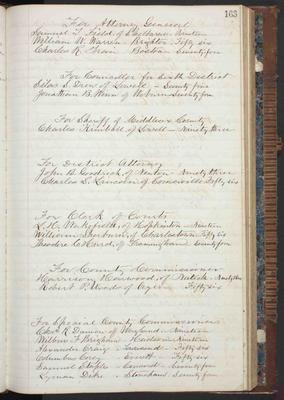 163
For Attorney General
Samuel T. Field of Shelburne Nineteen
William W. Warren Brighton Fifty six
Charles R. Train Boston Seventy four
For Councillor for Sixth District
Silas S. Drew of Lowell Seventy four
Jonathan B. Winn of Woburn Seventy four
For Sheriff of Middlesex County
Charles Kimball of Lowell Ninety three
For District Attorney
John B. Goodrich, of Newton Ninety three
Charles S. Lincoln of Somerville Fifty six
For Clerk of Courts
L. H. Wakefield, of Hopkinton Nineteen
William of Charlestown Fifty six
Theodore C. Hurd, of Framingham Seventy four
For County Commissioner
Harrison Harwood, of Natick Ninety three
Robert P. Woods of Ayer Fifty six
For Special County Commissioners
R. Damon of Wayland Nineteen
Wilbur F. Brigham Hudson Nineteen
Alexander Craig Townsend Fifty six
Columbus Corey Everett Fifty six
Samuel Staples Concord Seventy four
Lyman Dike Stoneham Seventy four